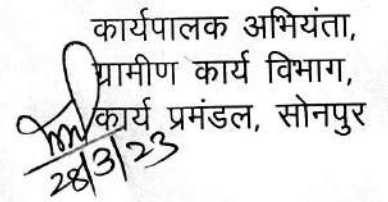 कार्यपालक अभियंता,
ग्रामीण कार्य विभाग,
कार्य प्रमंडल, सोनपुर
28/3/23